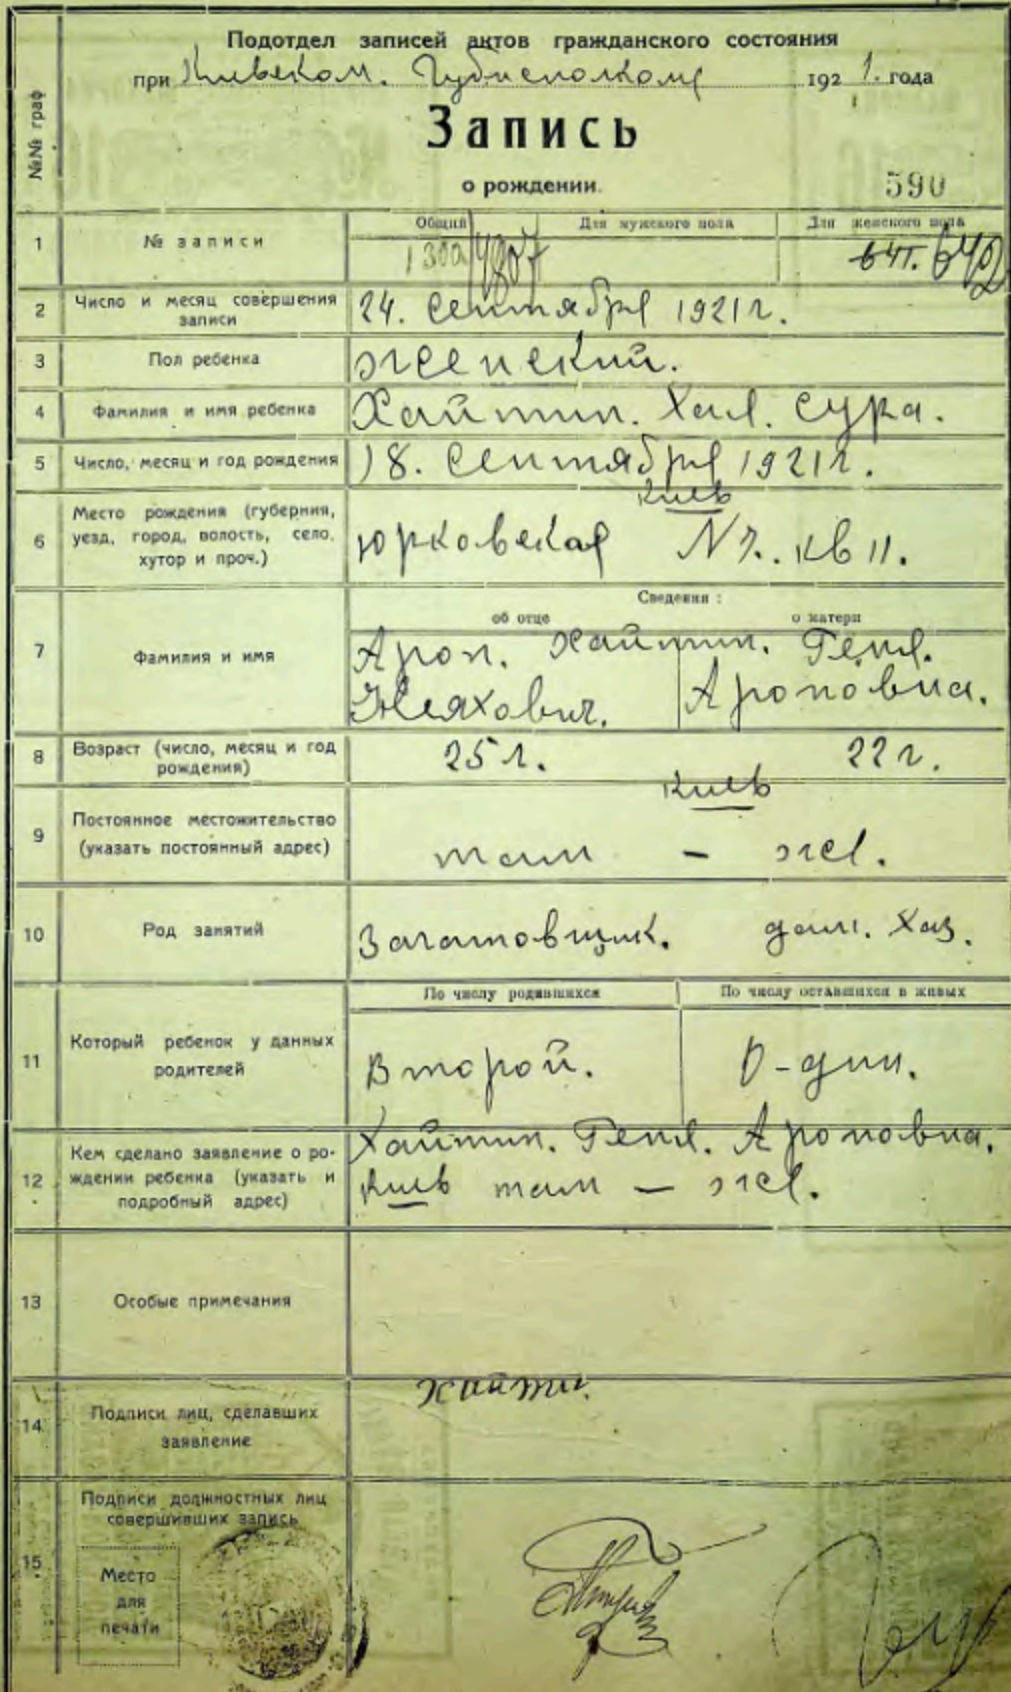 Подотдел записей актов гражданского состояния
при Киевском. Губисполкому 1921. года
Запись
о рождении.
590
№№ граф
Общий Для мужского пола Для женского пола
1 № записи 1300/4807 641. 642
2 Число и месяц совершения записи 24. Сентября 1921 г.
3 Пол ребенка женский.
4 Фамилия и имя ребенка Хайтин. Хая. Сура.
5 Число, месяц и год рождения 18. Сентября 1921 г.
Киев
6 Место рождения (губерния, уезд, город, волость, село, хутор и проч.) Юрковская № 7. кв 11.
Сведения:
об отце о матери
7 Фамилия и имя Арон. Хайтин. Геня.
Ароновна.
8 Возраст (число, месяц и год рождения) 25 л. 22 г.
Киев
9 Постоянное местожительство (указать постоянный адрес) там – же.
10 Род занятий Заготовщик. дом. Хоз.
По числу родившихся По числу оставшихся в живых
11 Который ребенок у данных родителей Второй. О-дин.
12 Кем сделано заявление о рождении ребенка (указать и подробный адрес) Хайтин. Геня. Ароновна.
Киев там – же.
13 Особые примечания
14 Подписи лиц, сделавших заявление Хайтин
15 Подписи должностных лиц совершивших запись
Место
для
печати